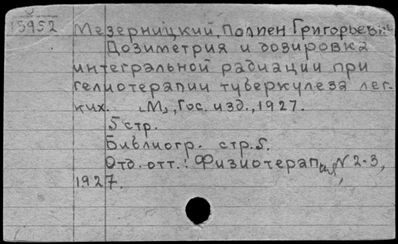 15952 Мезерницкий, Полиен Григорьевич
Дозиметрия и дозировка
интегральной радиации при
гелиотерапии туберкулеза лег-
ких. М., Гос. изд., 1927.
5 стр.
Библиогр. стр. 5.
Отд. отт.: Физиотерапия, N 2-3,
1927.